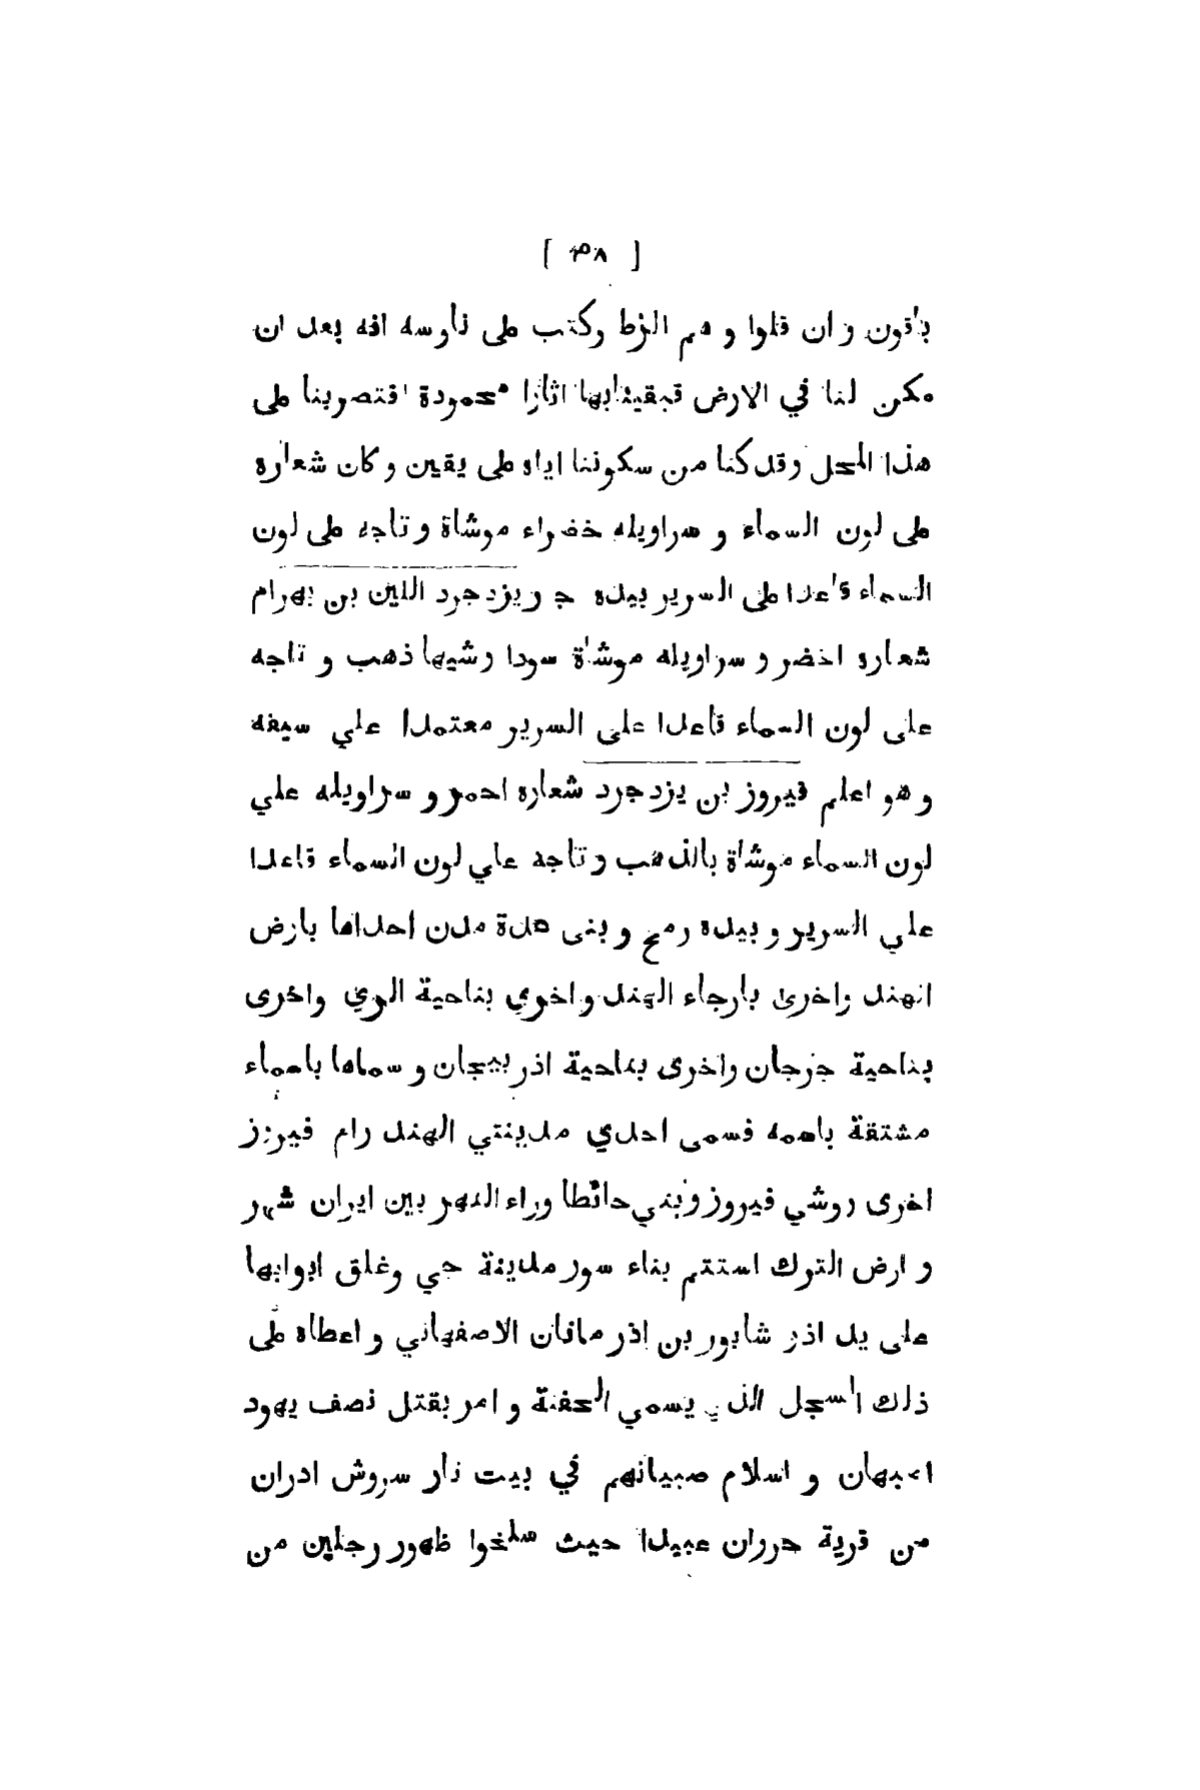 [ ٣٨ ]
باقون و ان قلوا و هم الزط وكتب على ناوسه انه بعد ان
مكن لنا في الارض فبقينا بها اثارا محمودة اقتصرنا على
هذا المحل وقد كنا من سكوننا اياه على يقين و كان شعاره
على لون السماء و سراويله خضراء موشاة و تاجه على لون
السماء قاعدا على السرير بيده ج ر يزد جرد اللين بن بهرام
شعاره اخضر و سراويله موشاة سودا وشيها ذهب و تاجه
على لون السماء قاعدا على السرير معتمدا علي سيفه
و هو اعلم فيروز بن يزد جرد شعاره احمر و سراويله علي
لون السماء موشاة بالذهب و تاجه علي لون السماء قاعدا
علي السرير و بيده رمح و بنى عدة مدن احداها بارض
الهند واخرى بارجاء الهند و اخري بناحية الري واخرى
بناحية جرجان واخرى بناحية اذر بيجان و سماها باسماء
مشتقة باسمه فسمى احدي مدينتي الهند رام فيروز
اخرى روشي فيروز و بني حائطا وراء النهر بين ايران شهر
و ارض الترك استتم بناء سور مدينة جي وغلق ابوابها
على يد اذر شابور بن اذر مانان الاصفهاني و اعطاه على
ذلك السجل الذي يسمي الحفنة و امر بقتل نصف يهود
اصبهان و اسلام صبيانهم في بيت نار سروش ادران
من قرية حرران عبيدا حيث سلخوا ظهور رجلين من